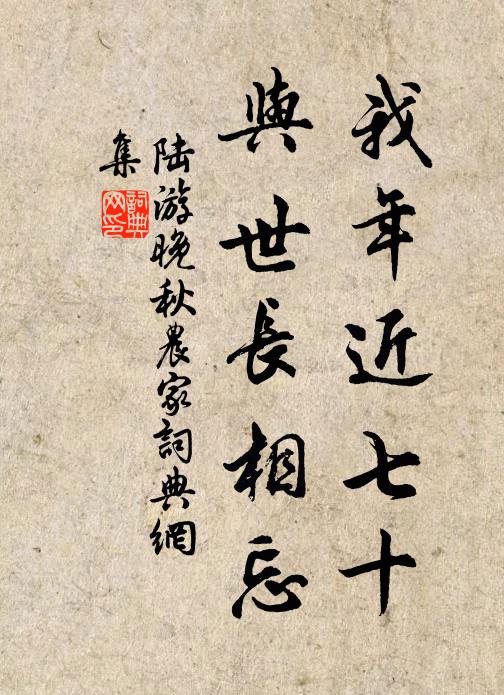 我年近七十
與世長相忘
陆游晚秋農家詞典網
集
詞典
网印